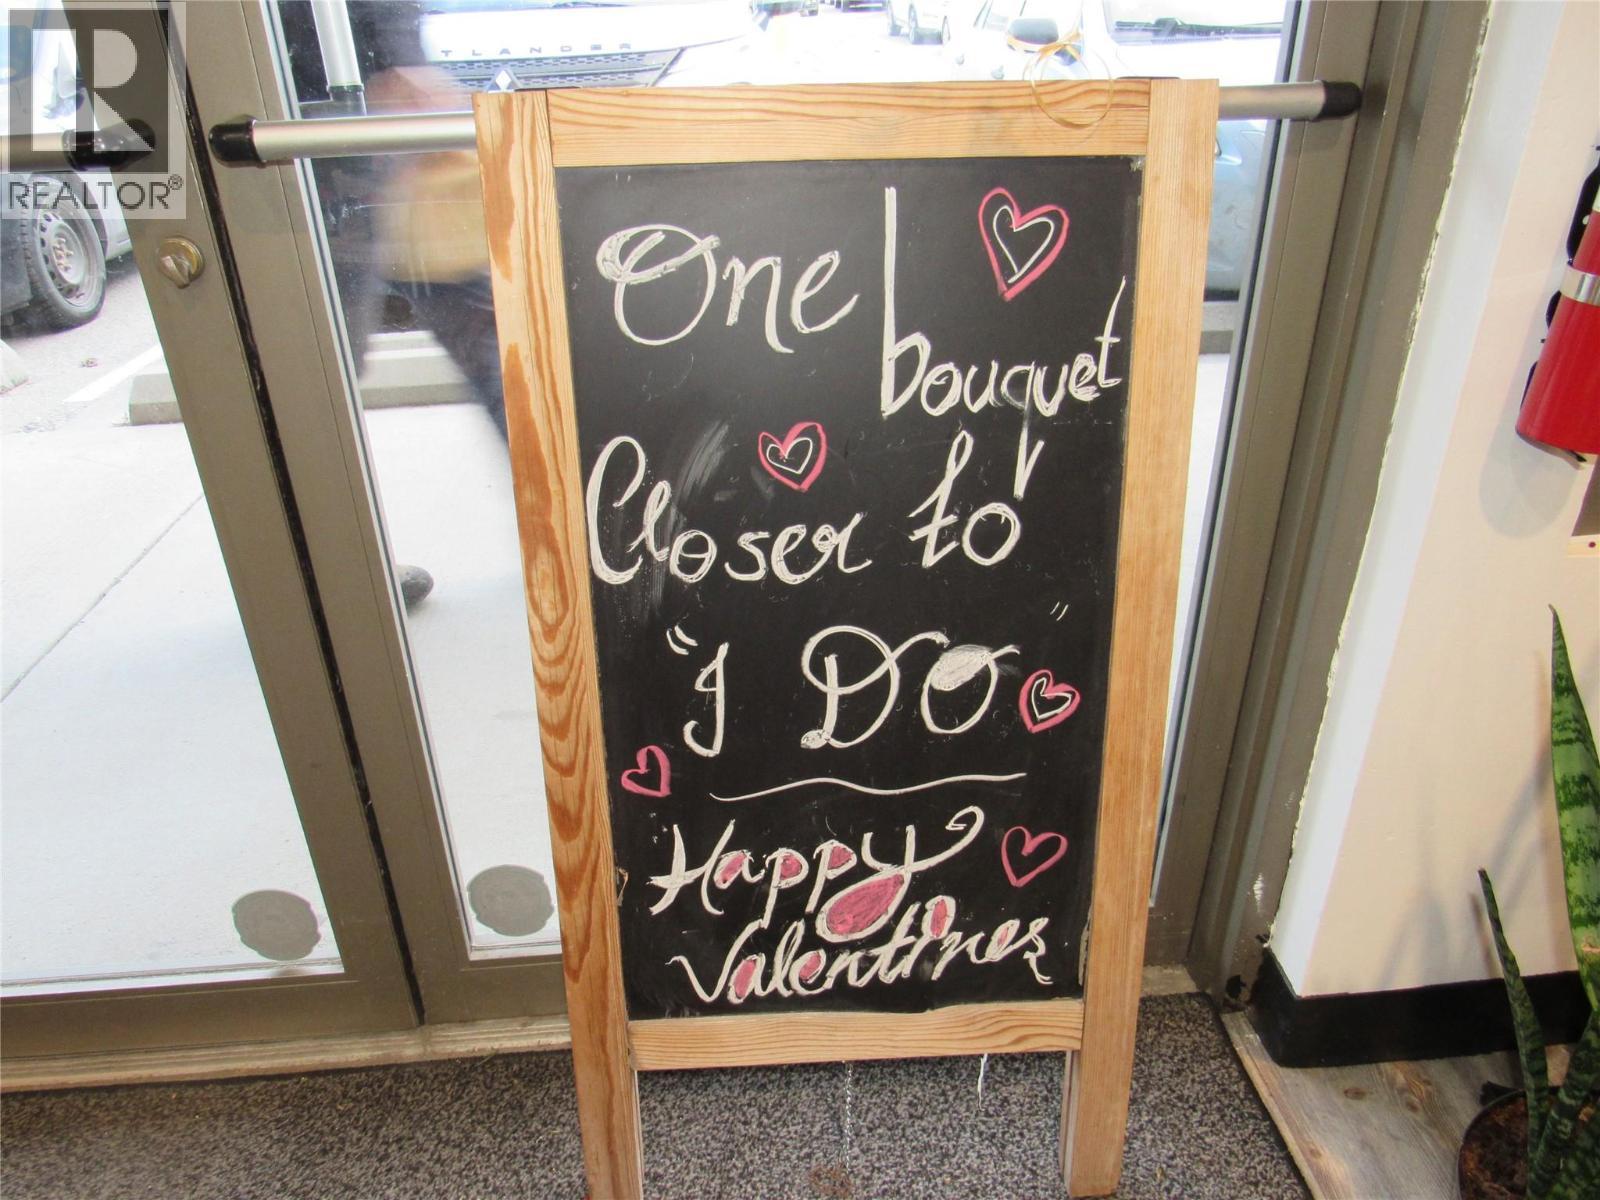 TLANDER
R
REALTOR®
One
bouquet
Closer to
"I DO"
Happy
Valentines